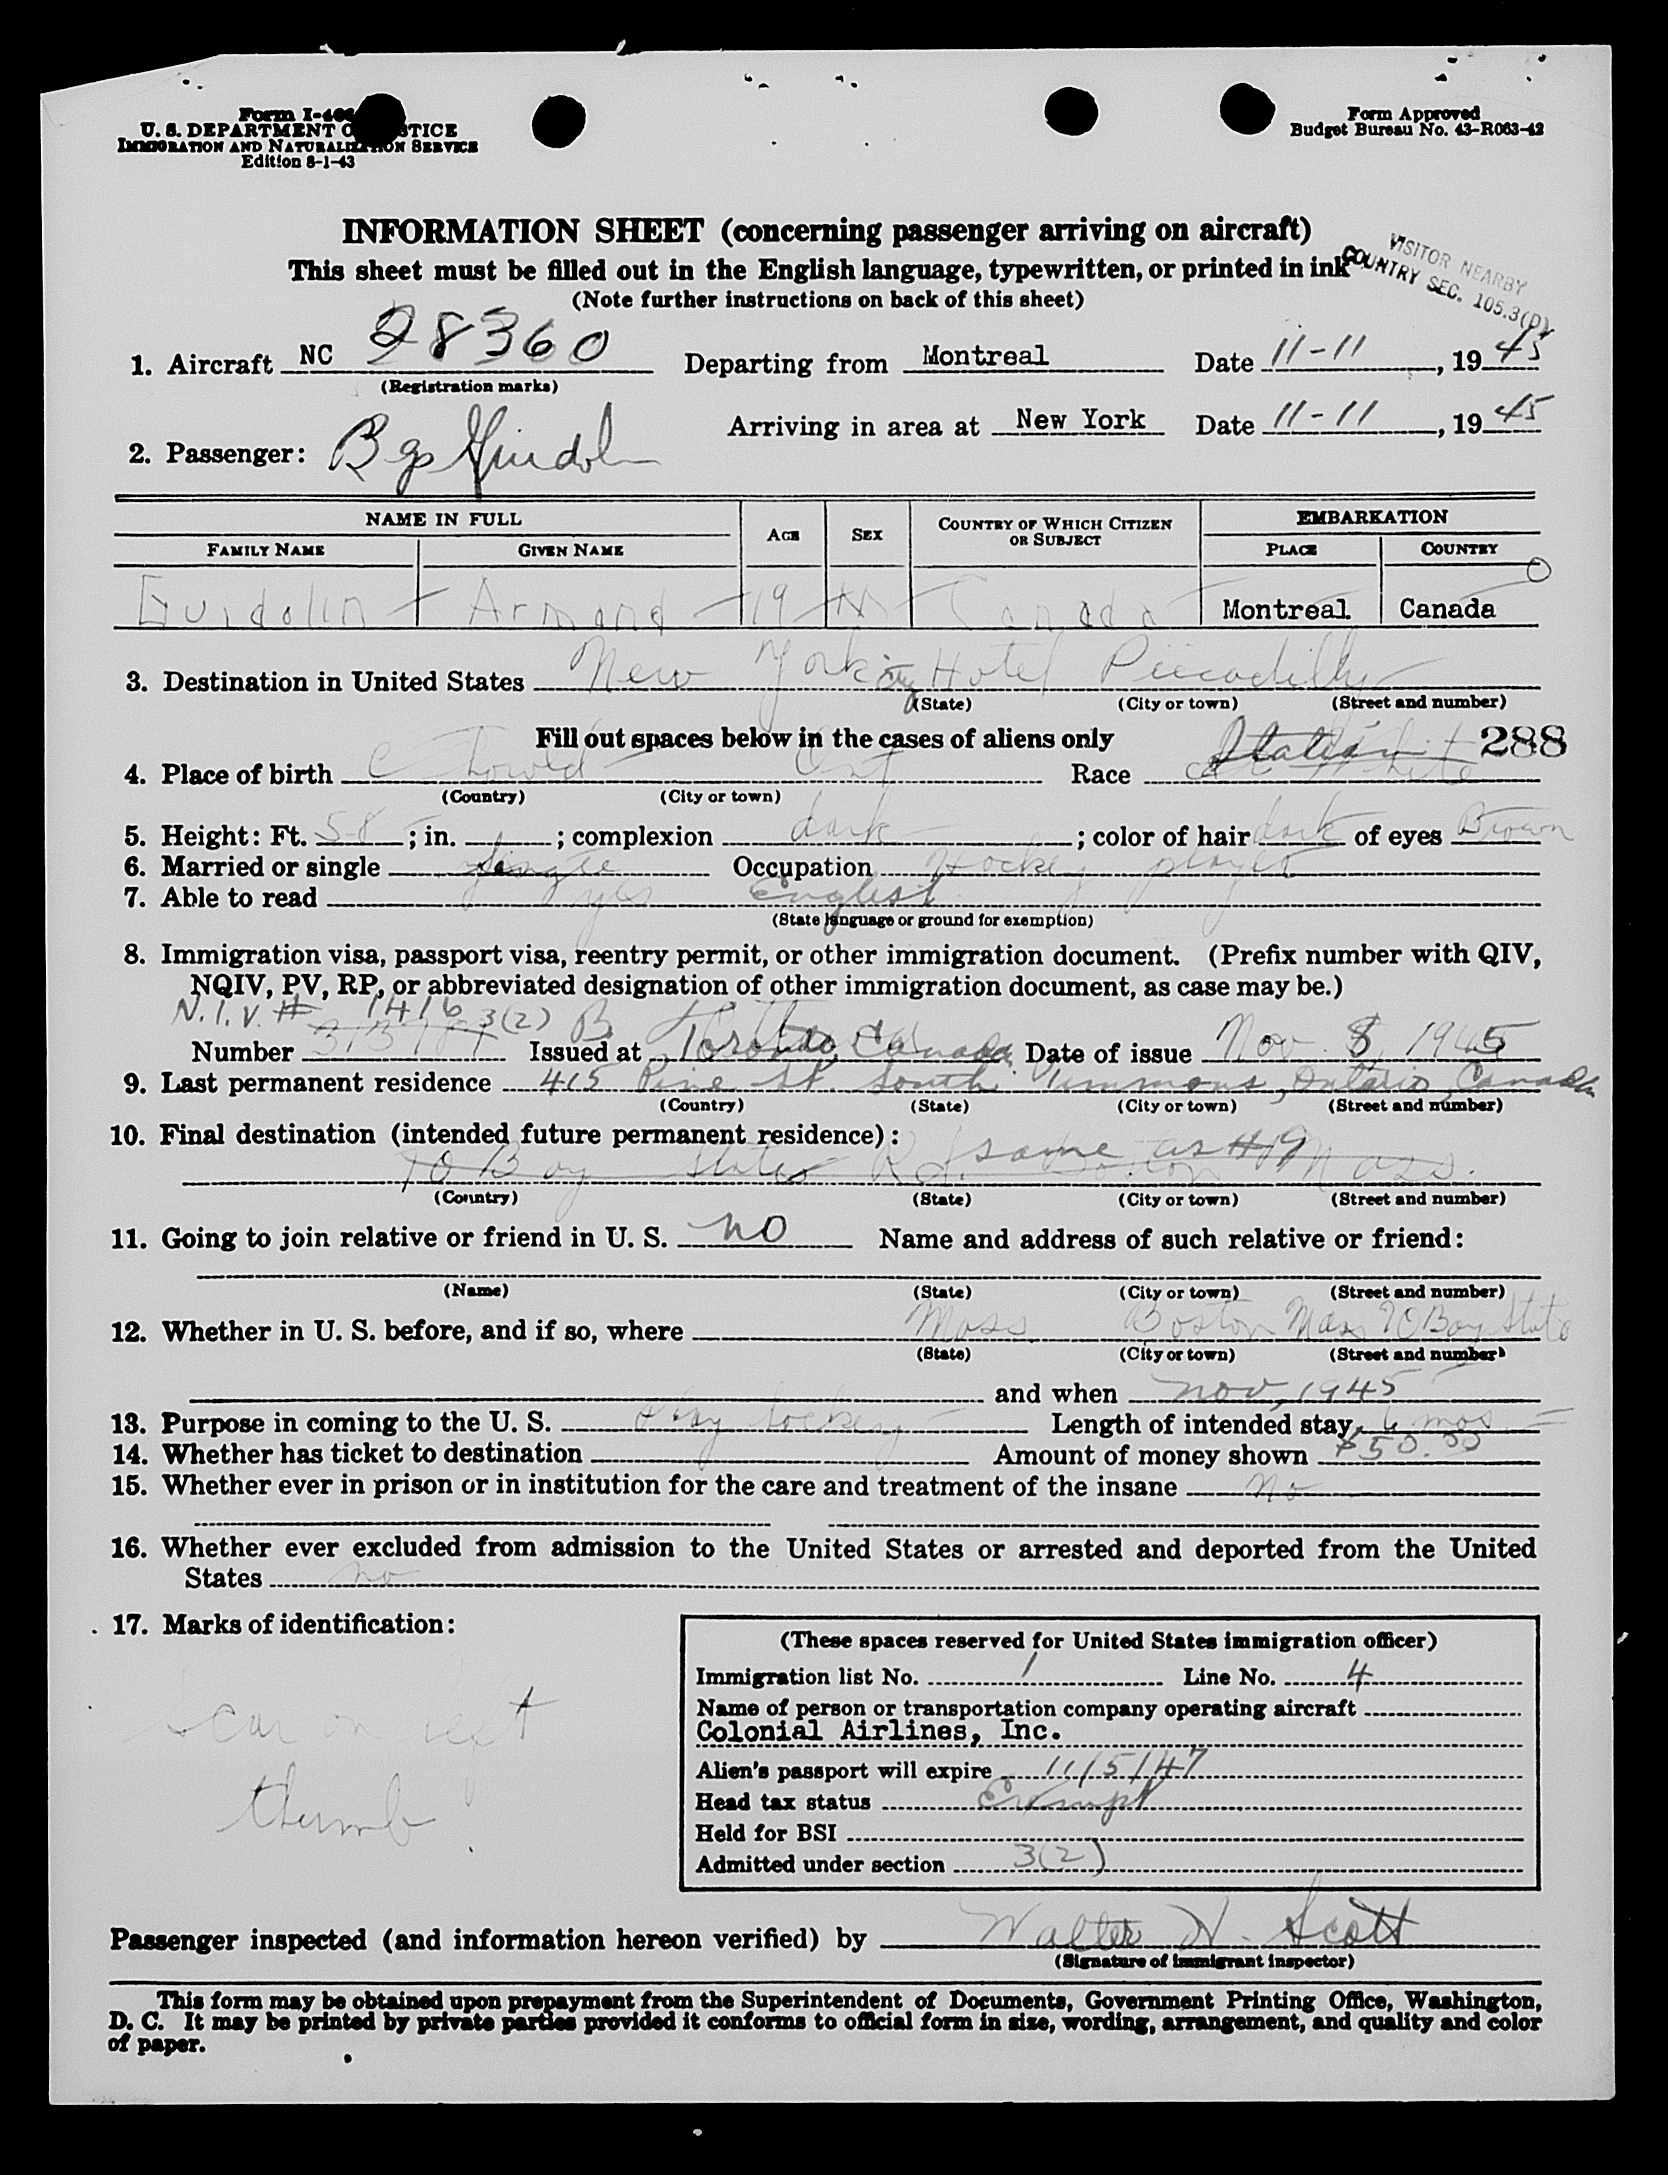 Form I-466
U. S. DEPARTMENT OF JUSTICE
IMMIGRATION AND NATURALIZATION SERVICE
Edition 8-1-43
Form Approved
Budget Bureau No. 43-R063-42
INFORMATION SHEET (concerning passenger arriving on aircraft)
This sheet must be filled out in the English language, typewritten, or printed in ink
(Note further instructions on back of this sheet)
VISITOR NEARBY
COUNTRY SEC. 105.3(D)
1. Aircraft NC 28360 Departing from Montreal Date 11-11, 1945
(Registration marks)
Arriving in area at New York Date 11-11, 1945
2. Passenger:
NAME IN FULL AGE SEX COUNTRY OF WHICH CITIZEN OR SUBJECT EMBARKATION
FAMILY NAME GIVEN NAME PLACE COUNTRY
Guidolin Armand 19 M Canada Montreal Canada
3. Destination in United States New York City Hotel Piccadilly
(State) (City or town) (Street and number)
Fill out spaces below in the cases of aliens only
288
4. Place of birth Ont Race Italian White
(Country) (City or town)
5. Height: Ft. 5-8; in. ; complexion dark; color of hair dark of eyes Brown
6. Married or single single Occupation Hockey player
7. Able to read yes English
(State language or ground for exemption)
8. Immigration visa, passport visa, reentry permit, or other immigration document. (Prefix number with QIV,
NQIV, PV, RP, or abbreviated designation of other immigration document, as case may be.)
N.I.V. # 1416 3(2)
Number Issued at Toronto, Canada Date of issue Nov 8, 1945
9. Last permanent residence 415 Pine St South Timmons, Ontario, Canada
(Country) (State) (City or town) (Street and number)
10. Final destination (intended future permanent residence):
70 Bay State Rd. Boston Mass. same as #9
(Country) (State) (City or town) (Street and number)
11. Going to join relative or friend in U. S. no Name and address of such relative or friend:
(Name) (State) (City or town) (Street and number)
12. Whether in U. S. before, and if so, where Mass Boston Mass 70 Bay State
(State) (City or town) (Street and number)
and when Nov, 1945
13. Purpose in coming to the U. S. Play hockey Length of intended stay 6 mos
14. Whether has ticket to destination Amount of money shown $50.00
15. Whether ever in prison or in institution for the care and treatment of the insane No
16. Whether ever excluded from admission to the United States or arrested and deported from the United
States no
17. Marks of identification:
scar on left
thumb
(These spaces reserved for United States immigration officer)
Immigration list No. 1 Line No. 4
Name of person or transportation company operating aircraft
Colonial Airlines, Inc.
Alien's passport will expire 11/5/47
Head tax status Exempt
Held for BSI
Admitted under section 3(2)
Passenger inspected (and information hereon verified) by Walter H. Scott
(Signature of immigrant inspector)
This form may be obtained upon prepayment from the Superintendent of Documents, Government Printing Office, Washington,
D. C. It may be printed by private parties provided it conforms to official form in size, wording, arrangement, and quality and color
of paper.